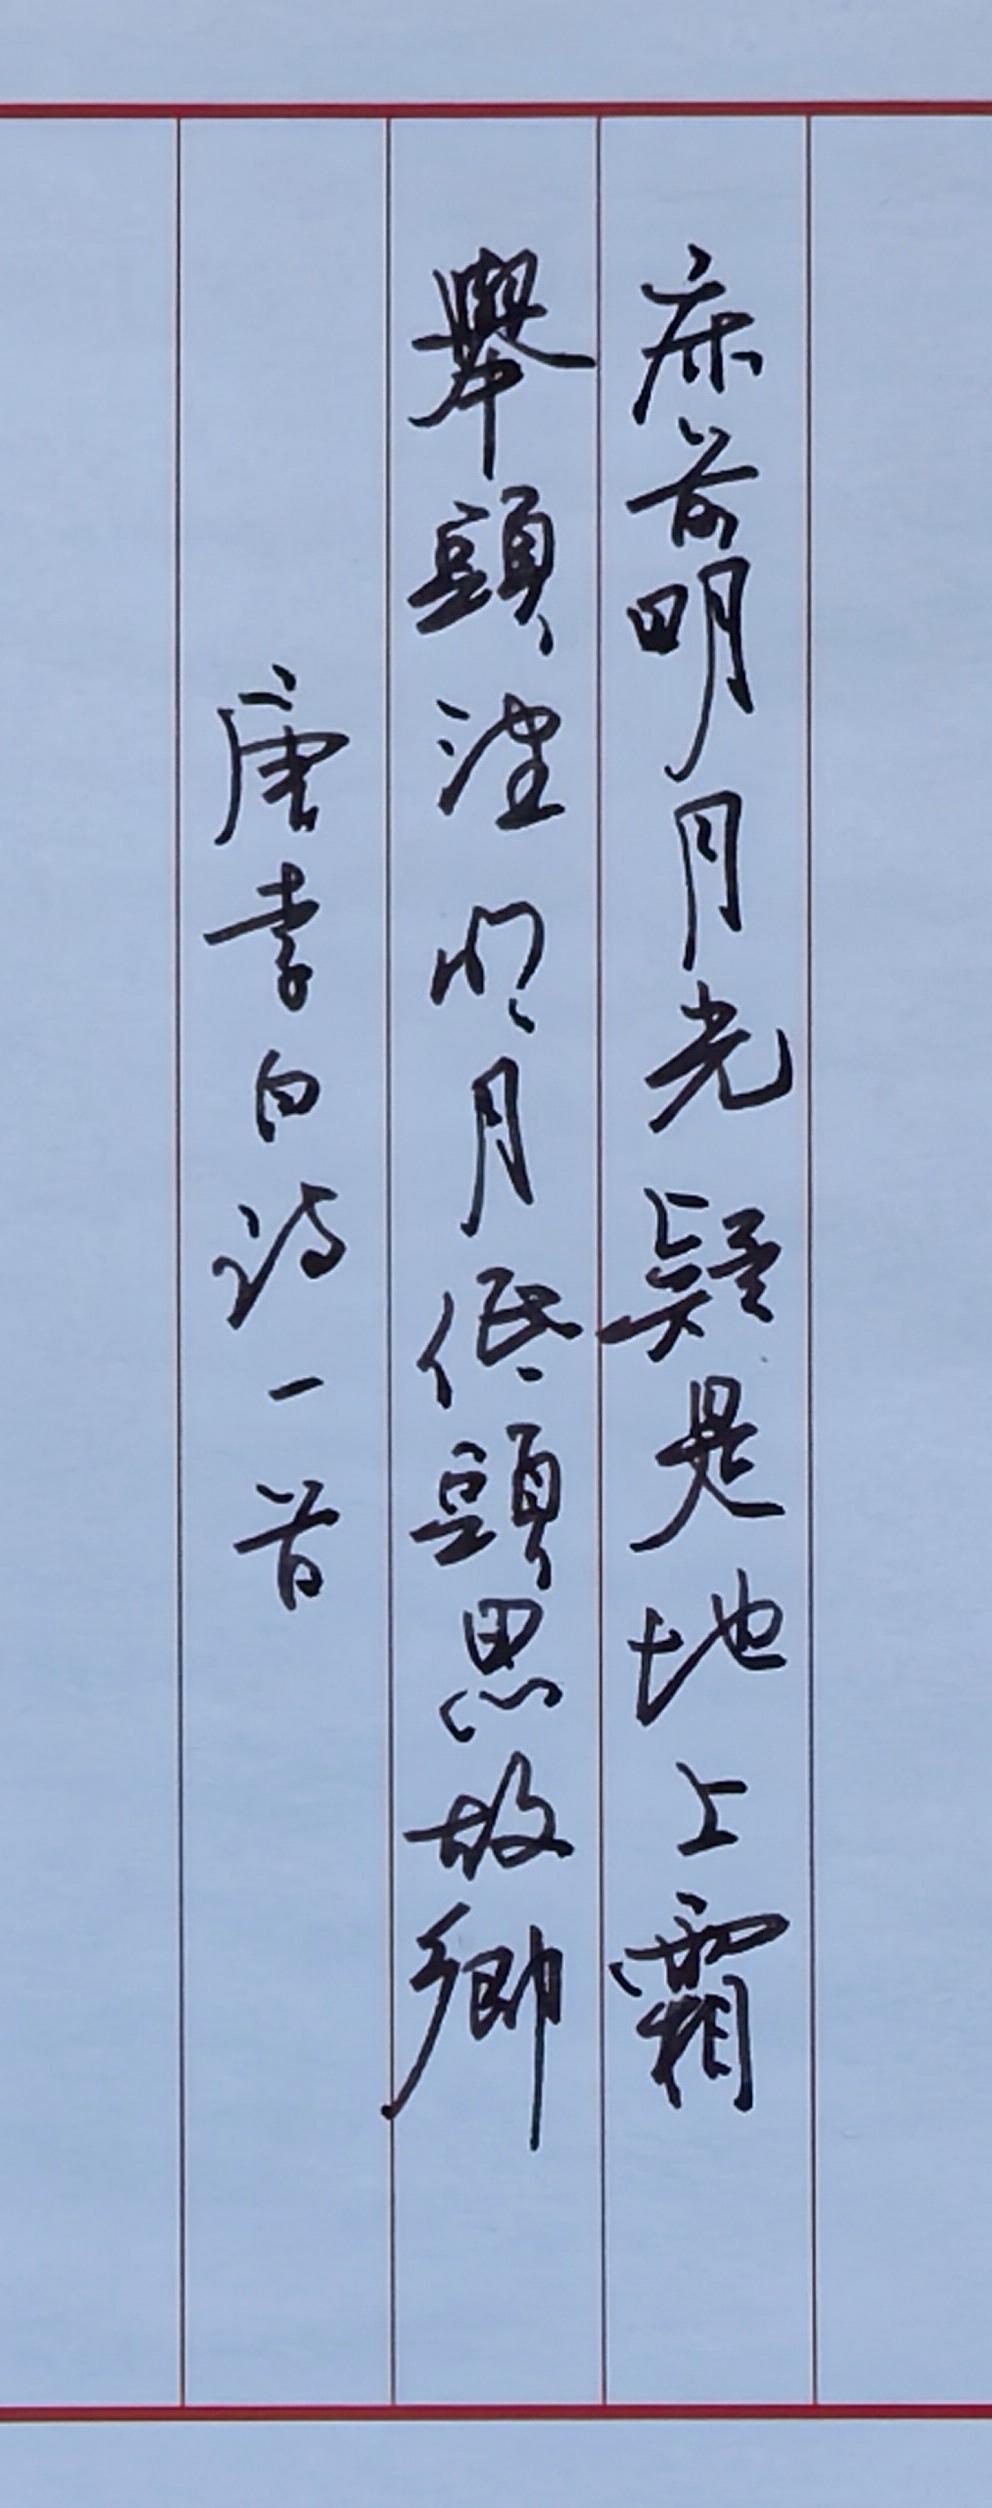 床前明月光疑是地上霜
舉頭望明月低頭思故鄉
唐李白诗一首